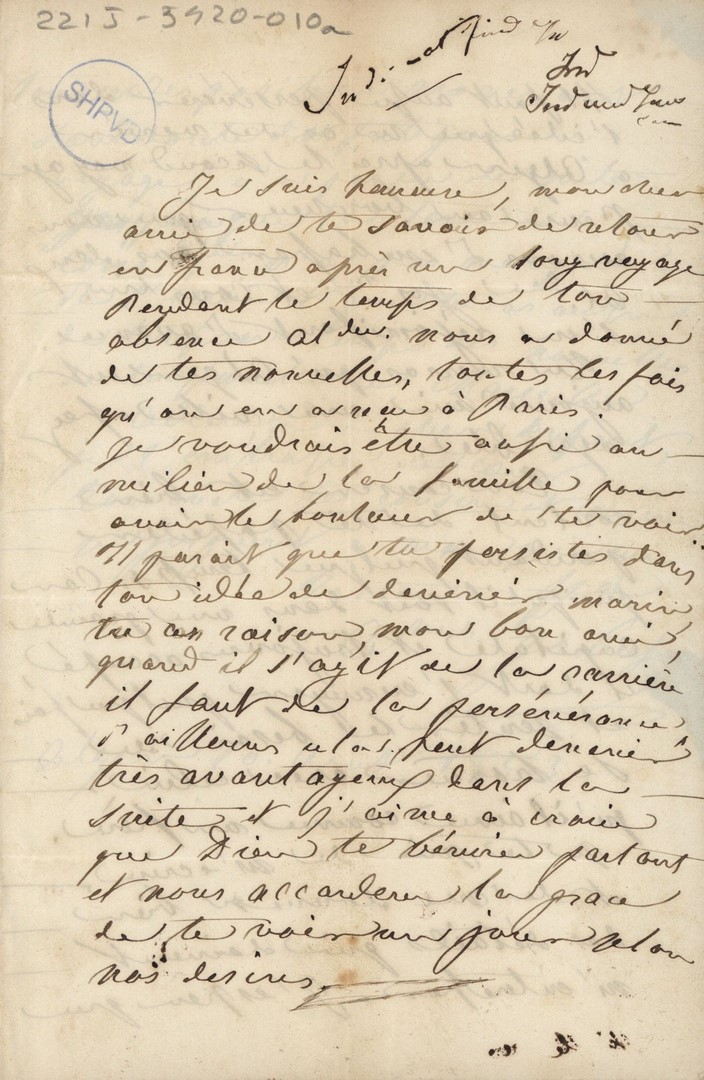 221J-3920-010a
SHPVD
Ind
Je suis heureuse, mon cher
ami de te savoir de retour
en france après un long voyage
Pendant le temps de ton
absence nous a donné
de tes nouvelles, toutes les fois
qu'on en a reçu à Paris.
je voudrais être aussi au
milieu de la famille pour
avoir le bonheur de te voir
Il parait que tu persistes dans
ton idée de devenir marin
tu as raison, mon bon ami,
quand il s'agit de la carrière
il faut de la persévérance
d'ailleurs cela peut devenir
très avantageux dans la
suite et j'aime à croire
que Dieu te bénira partout
et nous accordera la grace
de te voir un jour selon
nos desirs.